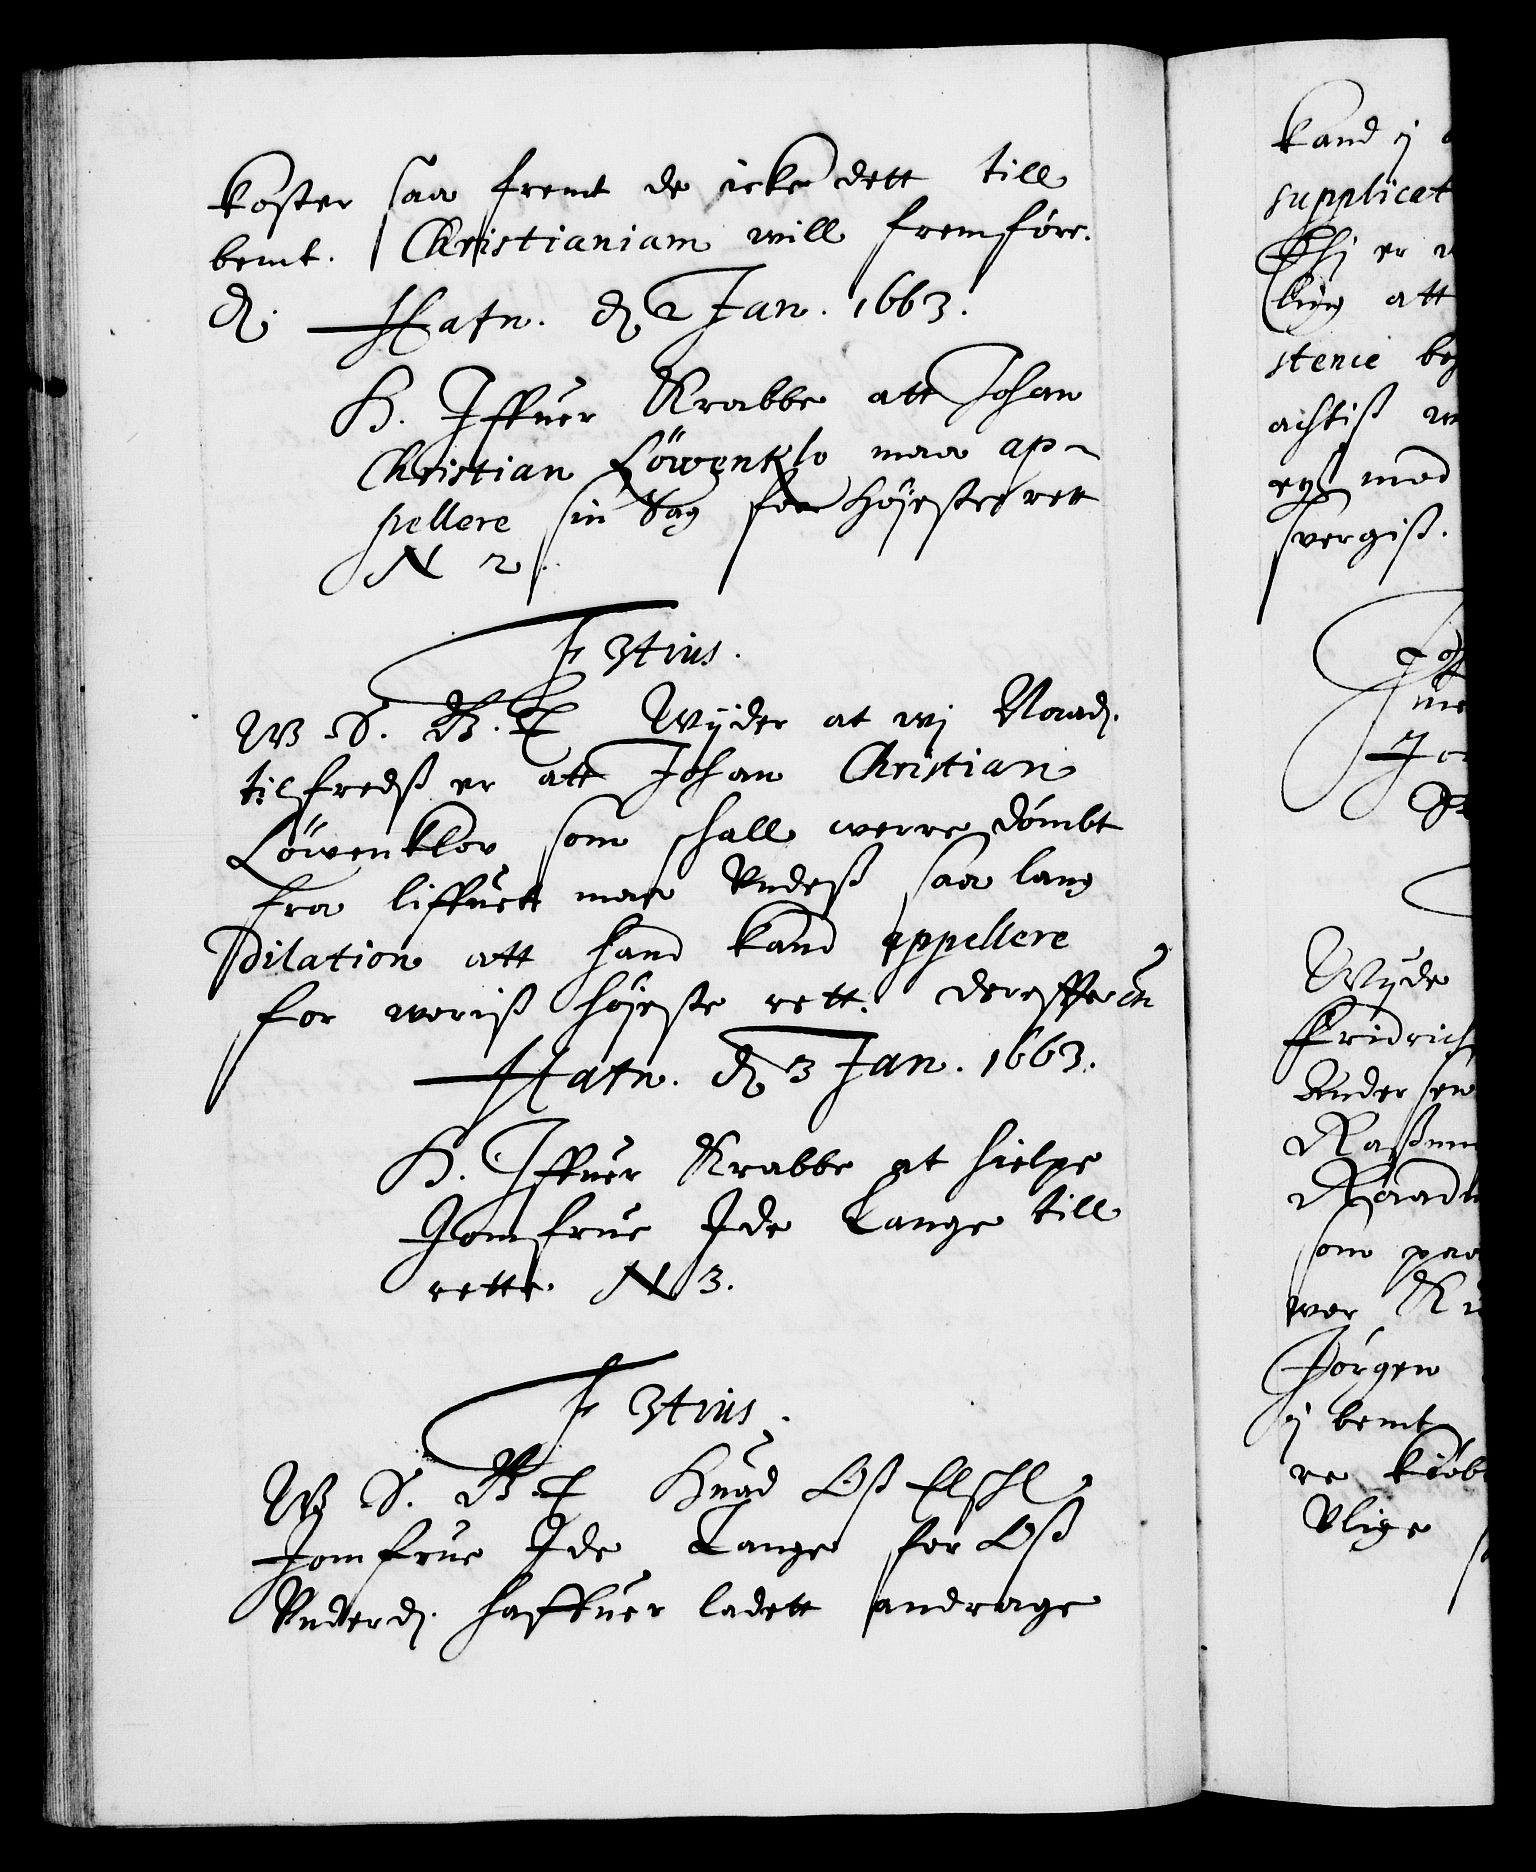 koster saa fremt de icke dett till
bemt. Christianiam will fremføre.
D. Hafn. d 2 Jan. 1663.
H. Iffuer Krabbe att Johan
Christian Löwenklo maa ap-
pellere sin Sag for Høyeste rett
N 2.
F 3tius.
W S. G. T Wijder at wj Naadj.
tilfredß er att Johan Christian
Löwenklov som schall werre dømbt
fra liffuett maa Undeß saa lang
Dilation att hand kand appellere
for woriß høyeste rett. Dereffter
Hafn. d 3 Jan. 1663.
H. Iffuer Krabbe at hielpe
Jomfrue Ide Lange till
rette N 3.
F 3tius.
W S. G. T Huad Oß Elschl
Jomfrue Ide Lange for Oß
Underdj. haffuer ladett andrage
kand ij
supplicat
er
att
stenie
achtiß
mod
Wijde
Fridrich
Andersen
som paa
wor
Jørgen
ij bemt
re kiøb